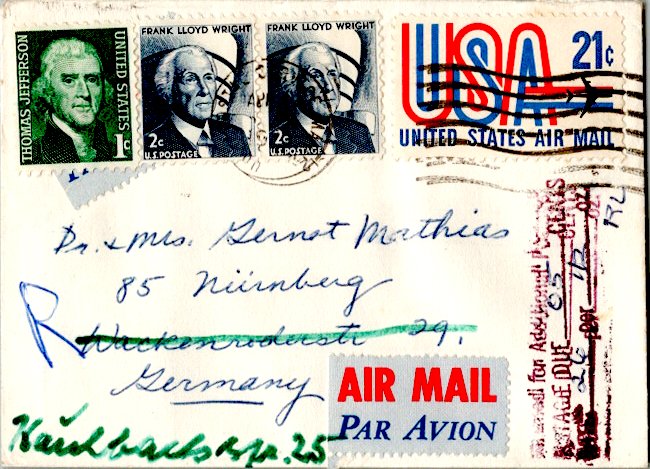 THOMAS JEFFERSON
UNITED STATES
1c
FRANK LLOYD WRIGHT
2c
U.S. POSTAGE
FRANK LLOYD WRIGHT
2c
U.S. POSTAGE
USA
21c
UNITED STATES AIR MAIL
Dr. & Mrs. Gernot Mathias
85 Nürnberg
Wackenroderstr 29.
Germany
R
AIR MAIL
PAR AVION
Kaulbachstr. 25
for Additional
POSTAGE DUE 05 CENTS